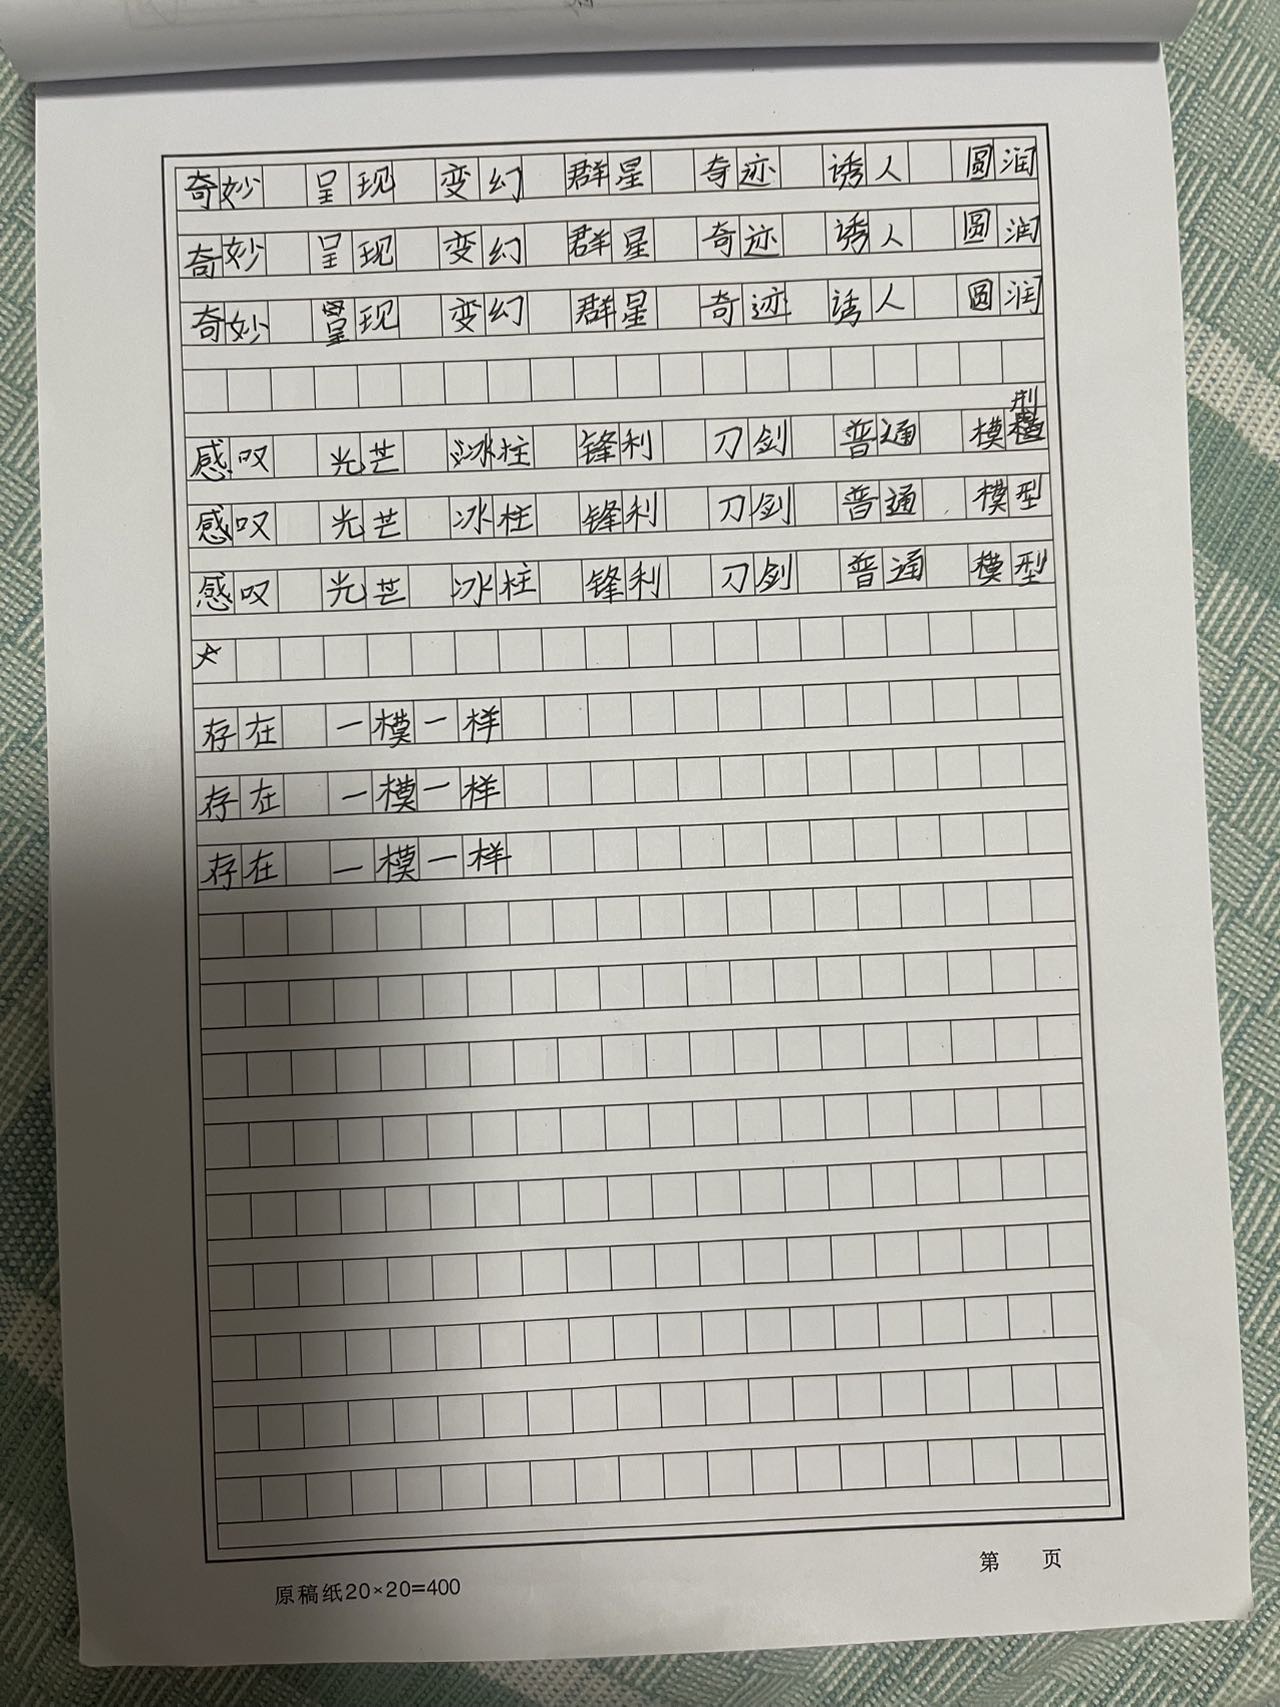 奇妙 呈现 变幻 群星 奇迹 诱人 圆润
奇妙 呈现 变幻 群星 奇迹 诱人 圆润
奇妙 呈现 变幻 群星 奇迹 诱人 圆润
感叹 光芒 冰柱 锋利 刀剑 普通 模型
感叹 光芒 冰柱 锋利 刀剑 普通 模型
感叹 光芒 冰柱 锋利 刀剑 普通 模型
存在 一模一样
存在 一模一样
存在 一模一样
第 页
原稿纸20×20=400